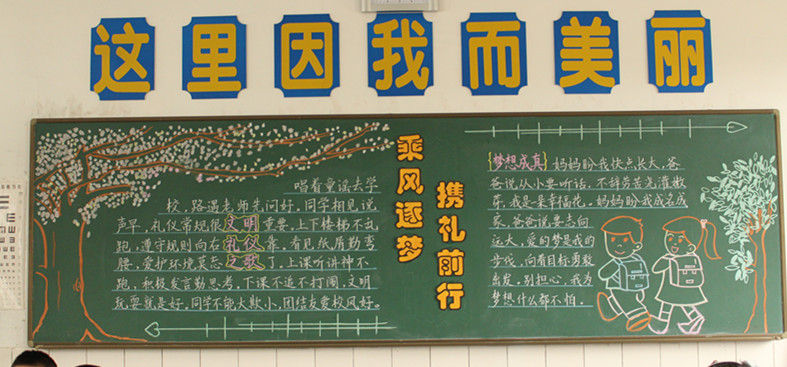 这里因我而美丽
乘风逐梦
携礼前行
唱着童谣去学
校，路遇老师先问好。同学相见说
声早，礼仪常规很重要。上下楼梯不乱
跑，遵守规则向右靠。看见纸屑勤弯
腰，爱护环境莫忘了。上课听讲神不
跑，积极发言勤思考。下课不追不打闹，文明
玩耍就是好。同学不能大欺小，团结友爱校风好。
文明
礼仪
之歌
梦想成真
妈妈盼我快点长大，爸
爸说从小要听话，不辞劳苦先灌溉
芽，我是一朵幸福花。妈妈盼我成名成
家，爸爸说要志向
远大，爱的梦是我的
步伐，向着目标勇敢
出发，别担心，我为
梦想什么都不怕。